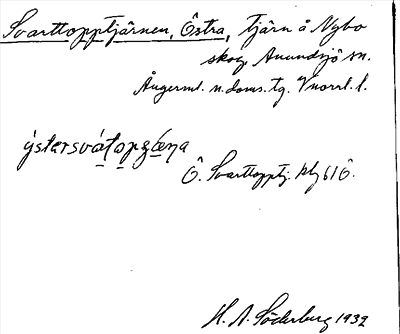 Svarttopptjärnen, Östra, tjärn å Nybo
skog Anundsjö sn.
Ångerml. n. doms. tg. Vnorrl. l.
ýstərsvátopʒæ̀ɳa
Ö. Svarttopptj. kbl 61 Ö.
H. A. Söderberg 1932